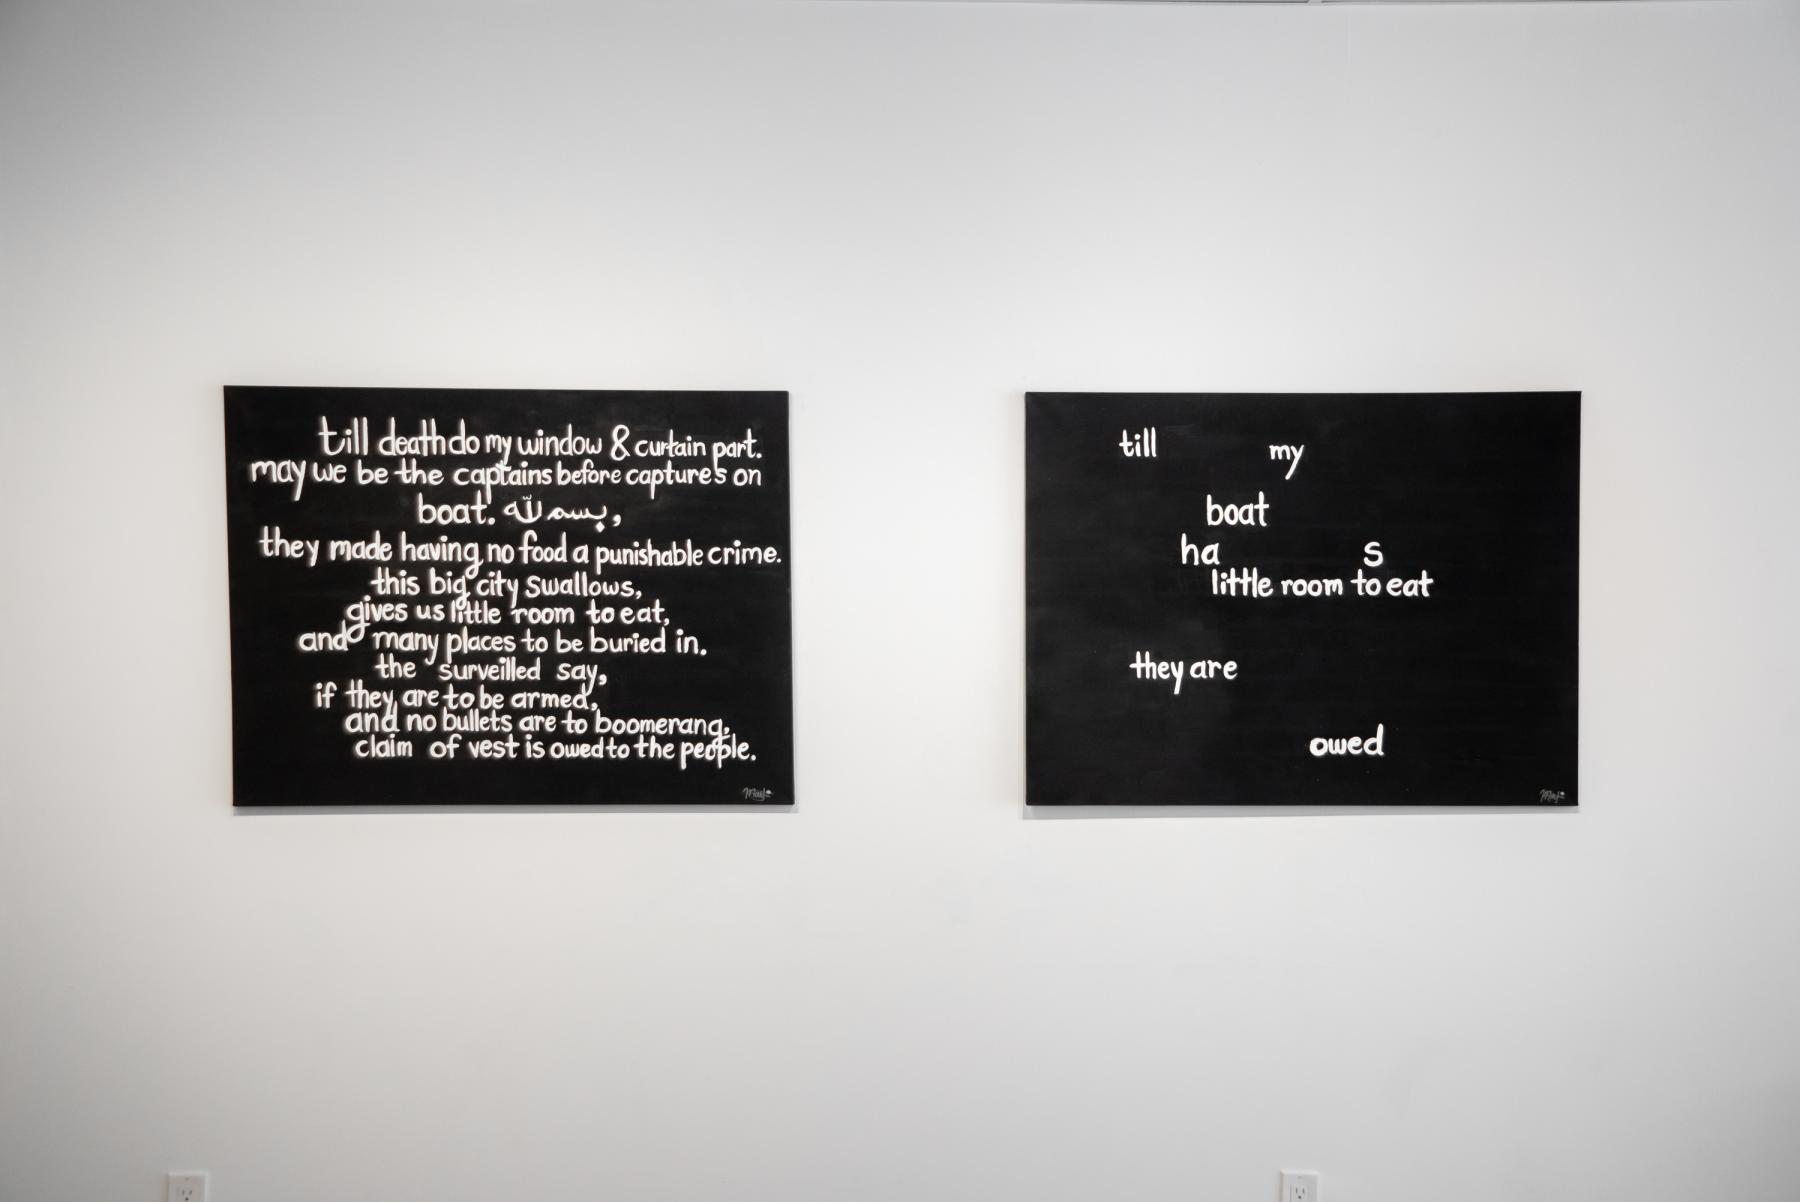 till death do my window & curtain part.
may we be the captains before captures on
boat. بسم الله,
they made having no food a punishable crime.
this big city swallows,
gives us little room to eat,
and many places to be buried in.
the surveilled say,
if they are to be armed,
and no bullets are to boomerang,
claim of vest is owed to the people.
till my
boat
ha s
little room to eat
they are
owed